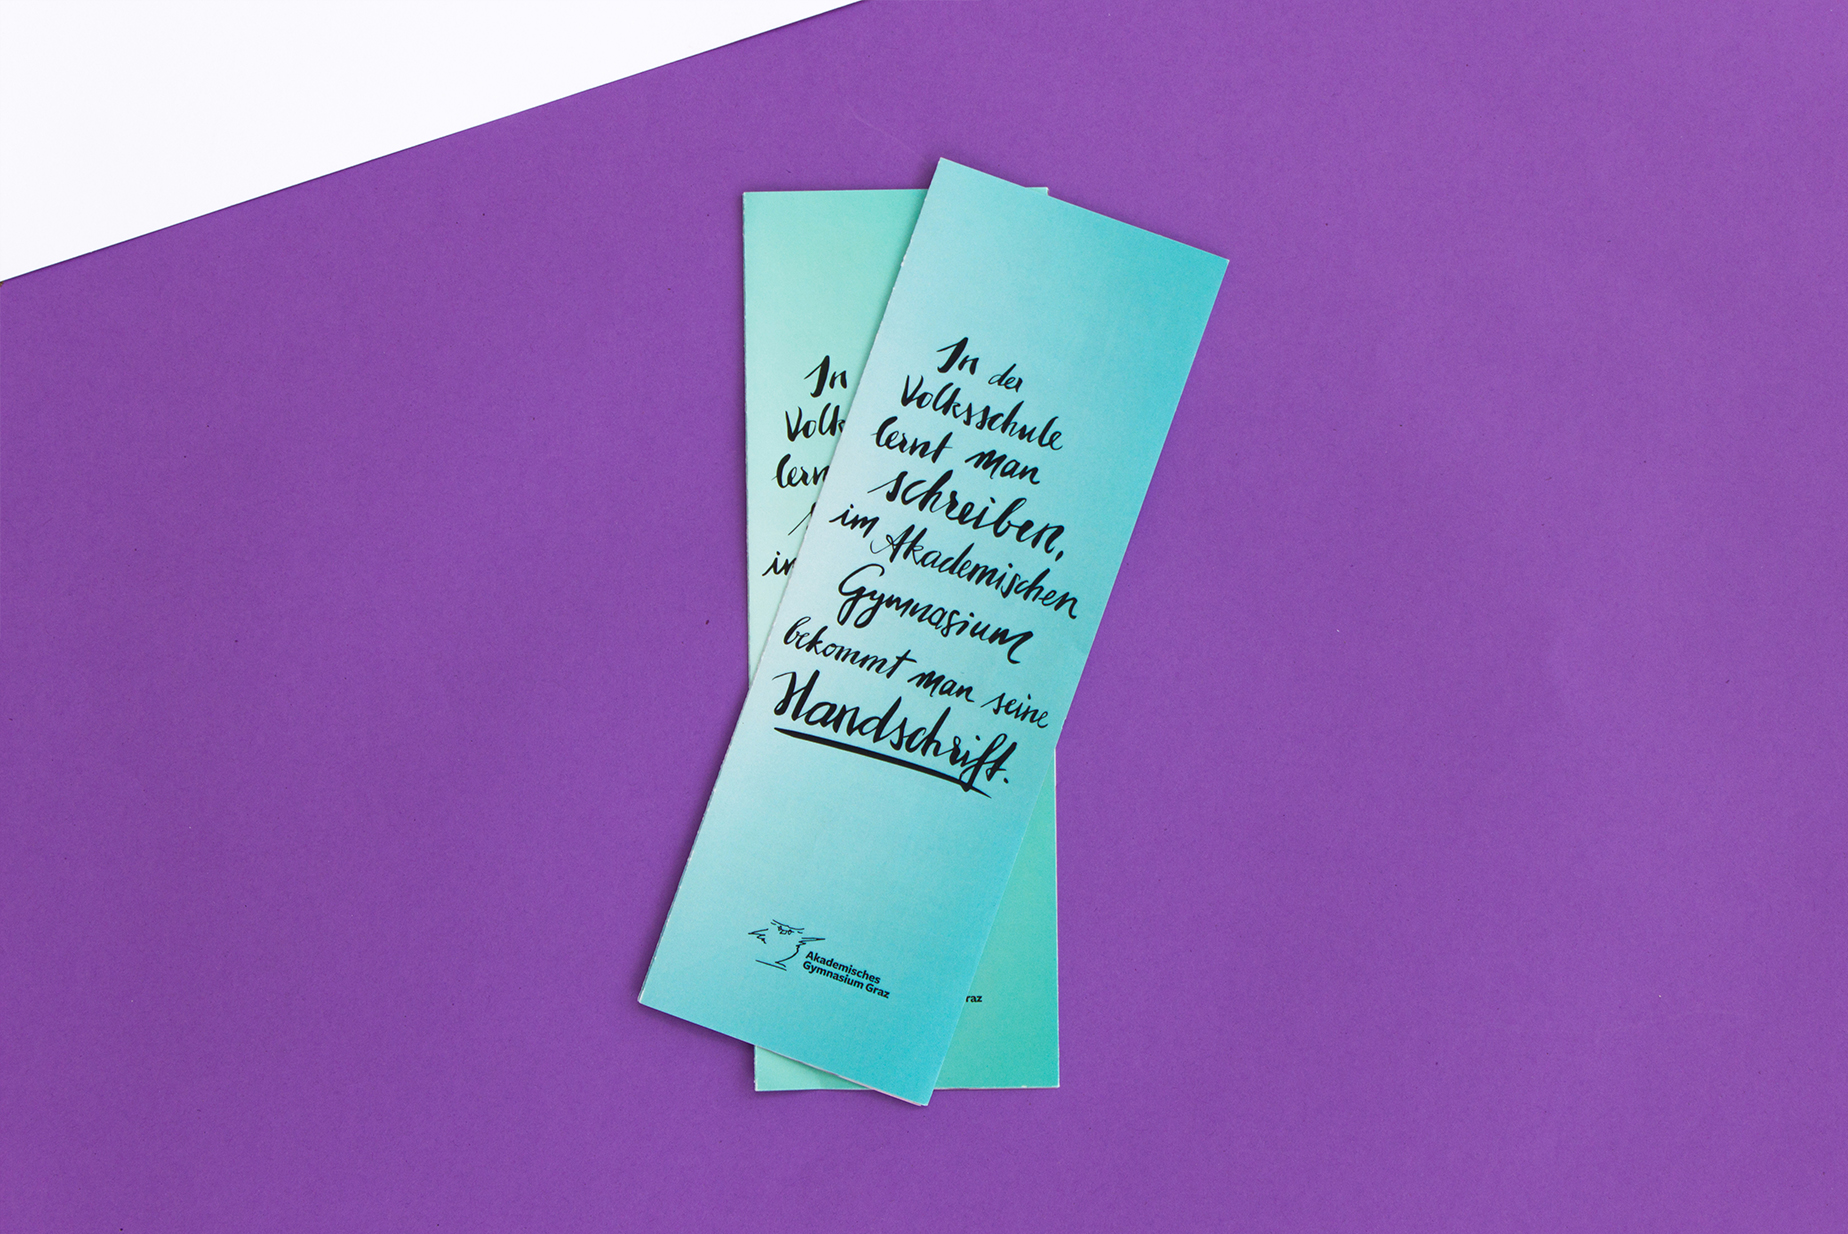 In der
Volksschule
lernt man
schreiben,
im Akademischen
Gymnasium
bekommt man seine
Handschrift.
Akademisches
Gymnasium Graz
In
Volk
lern
in
raz